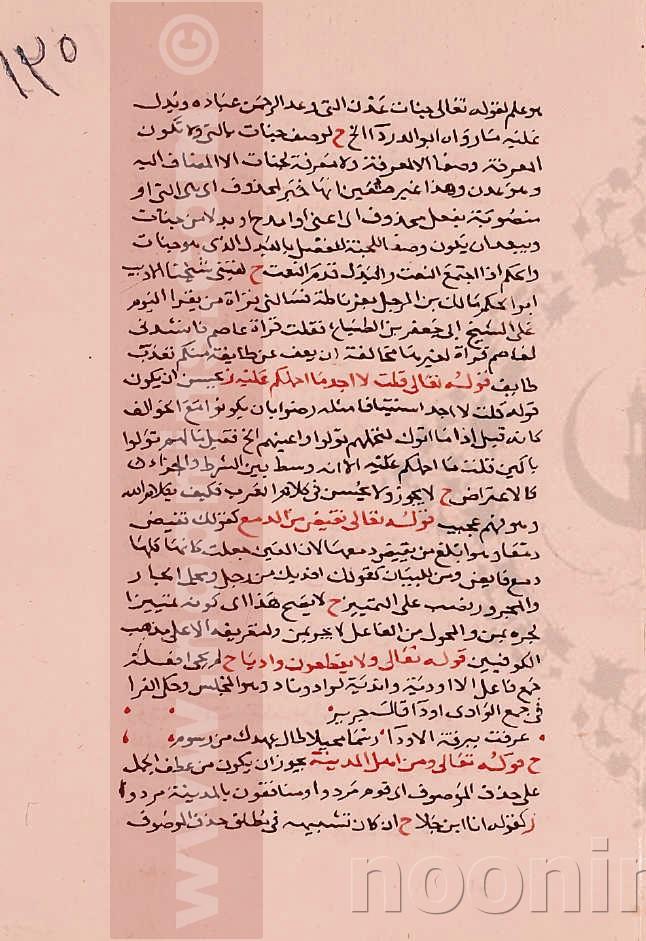 ١٢٥
هو علم لقوله تعالى جنات عدن التى وعد الرحمن عباده ويدل
عليه ما روا ابو الدردآ الخ ح لوصف جنات بالتى ولا تكون
المعرفة وصفا الا لمعرفة ولا معرفة لجنات الا المضاف اليه
وهو عدن وهذا غير متعين انها خبر لمحذوف اى هى التى او
منصوبة بفعل محذوف اى اعنى او امدح او بدلا من جنات
ويبعد ان يكون وصفا للجنة للفصل بالبدل الذى هو جنات
والحكم اذا اجتمع النعت والبدل قدم النعت ح لقينى شيخنا الاديب
ابو الحكم مالك بن المرحل بغرناطة فسالنى قراة من يقرا اليوم
على الشيخ ابى جعفر بن الطباع فقلت قراة عاصم فانشدنى
لعاصم قراة لغيرها مخالفة ان يعف عن طايفة منكم تعذب
طايفه قوله تعالى قلت لا اجد ما احملكم عليه ز يحسن ان يكون
قوله قلت لا اجد استينافا مثله رضوا بان يكونوا مع الخوالف
كانه قيل اذا ما اتوك لتحملهم تولوا واعينهم الخ فقيل ما لهم تولوا
باكين قلت ما احملكم عليه الا انه وسط بين الشرط والجزاء
كالاعتراض ح لا يجوز ولا يحسن فى كلام العرب فكيف بكلام الله
وهو فهم عجيب قوله تعالى تفيض من الدمع كقولك تفيض
دمعا وهو ابلغ من يفيض دمعها لان العين جعلت كانها كلها
دمع فايض ومن للبيان كقولك افديك من رجل ومحل الجار
والمجرور نصب على التمييز ح لا يصح هذا اى كونه تمييزا
لجره بمن والمحول من الفاعل لا يجر بمن ولتعريفه الا على مذهب
الكوفيين قوله تعالى ولا يقطعون واديا ح لم يجى افعلة
جمع فاعل الا اودية واندية لواد وناد وهو المجلس وحكى الفرا
فى جمع الوادى اودا قال جرير
عرفت ببرقة الاودآ رسما محيلا طال عهدك من رسوم
ح قوله تعالى ومن اهل المدينة يجوز ان يكون من عطف الجمل
على حذف الموصوف اى قوم مردوا ومنافقون بالمدينة مردوا
ز كقوله انا ابن جلا ح ان كان تشبيهه فى مطلق حذف الموصوف
noonin